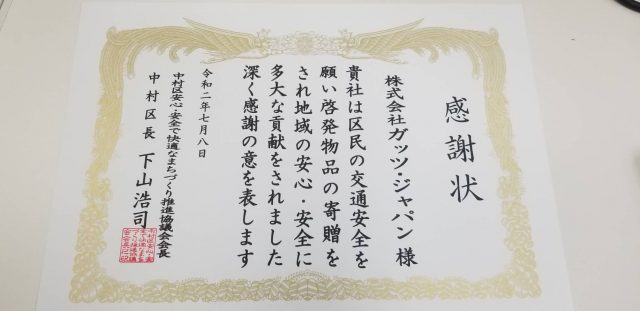 感謝状
株式会社ガッツ・ジャパン 様
貴社は区民の交通安全を
願い啓発物品の寄贈を
され地域の安心・安全に
多大な貢献をされました
深く感謝の意を表します
令和二年七月八日
中村区安心・安全で快適なまちづくり推進協議会会長
中村区長 下山浩司